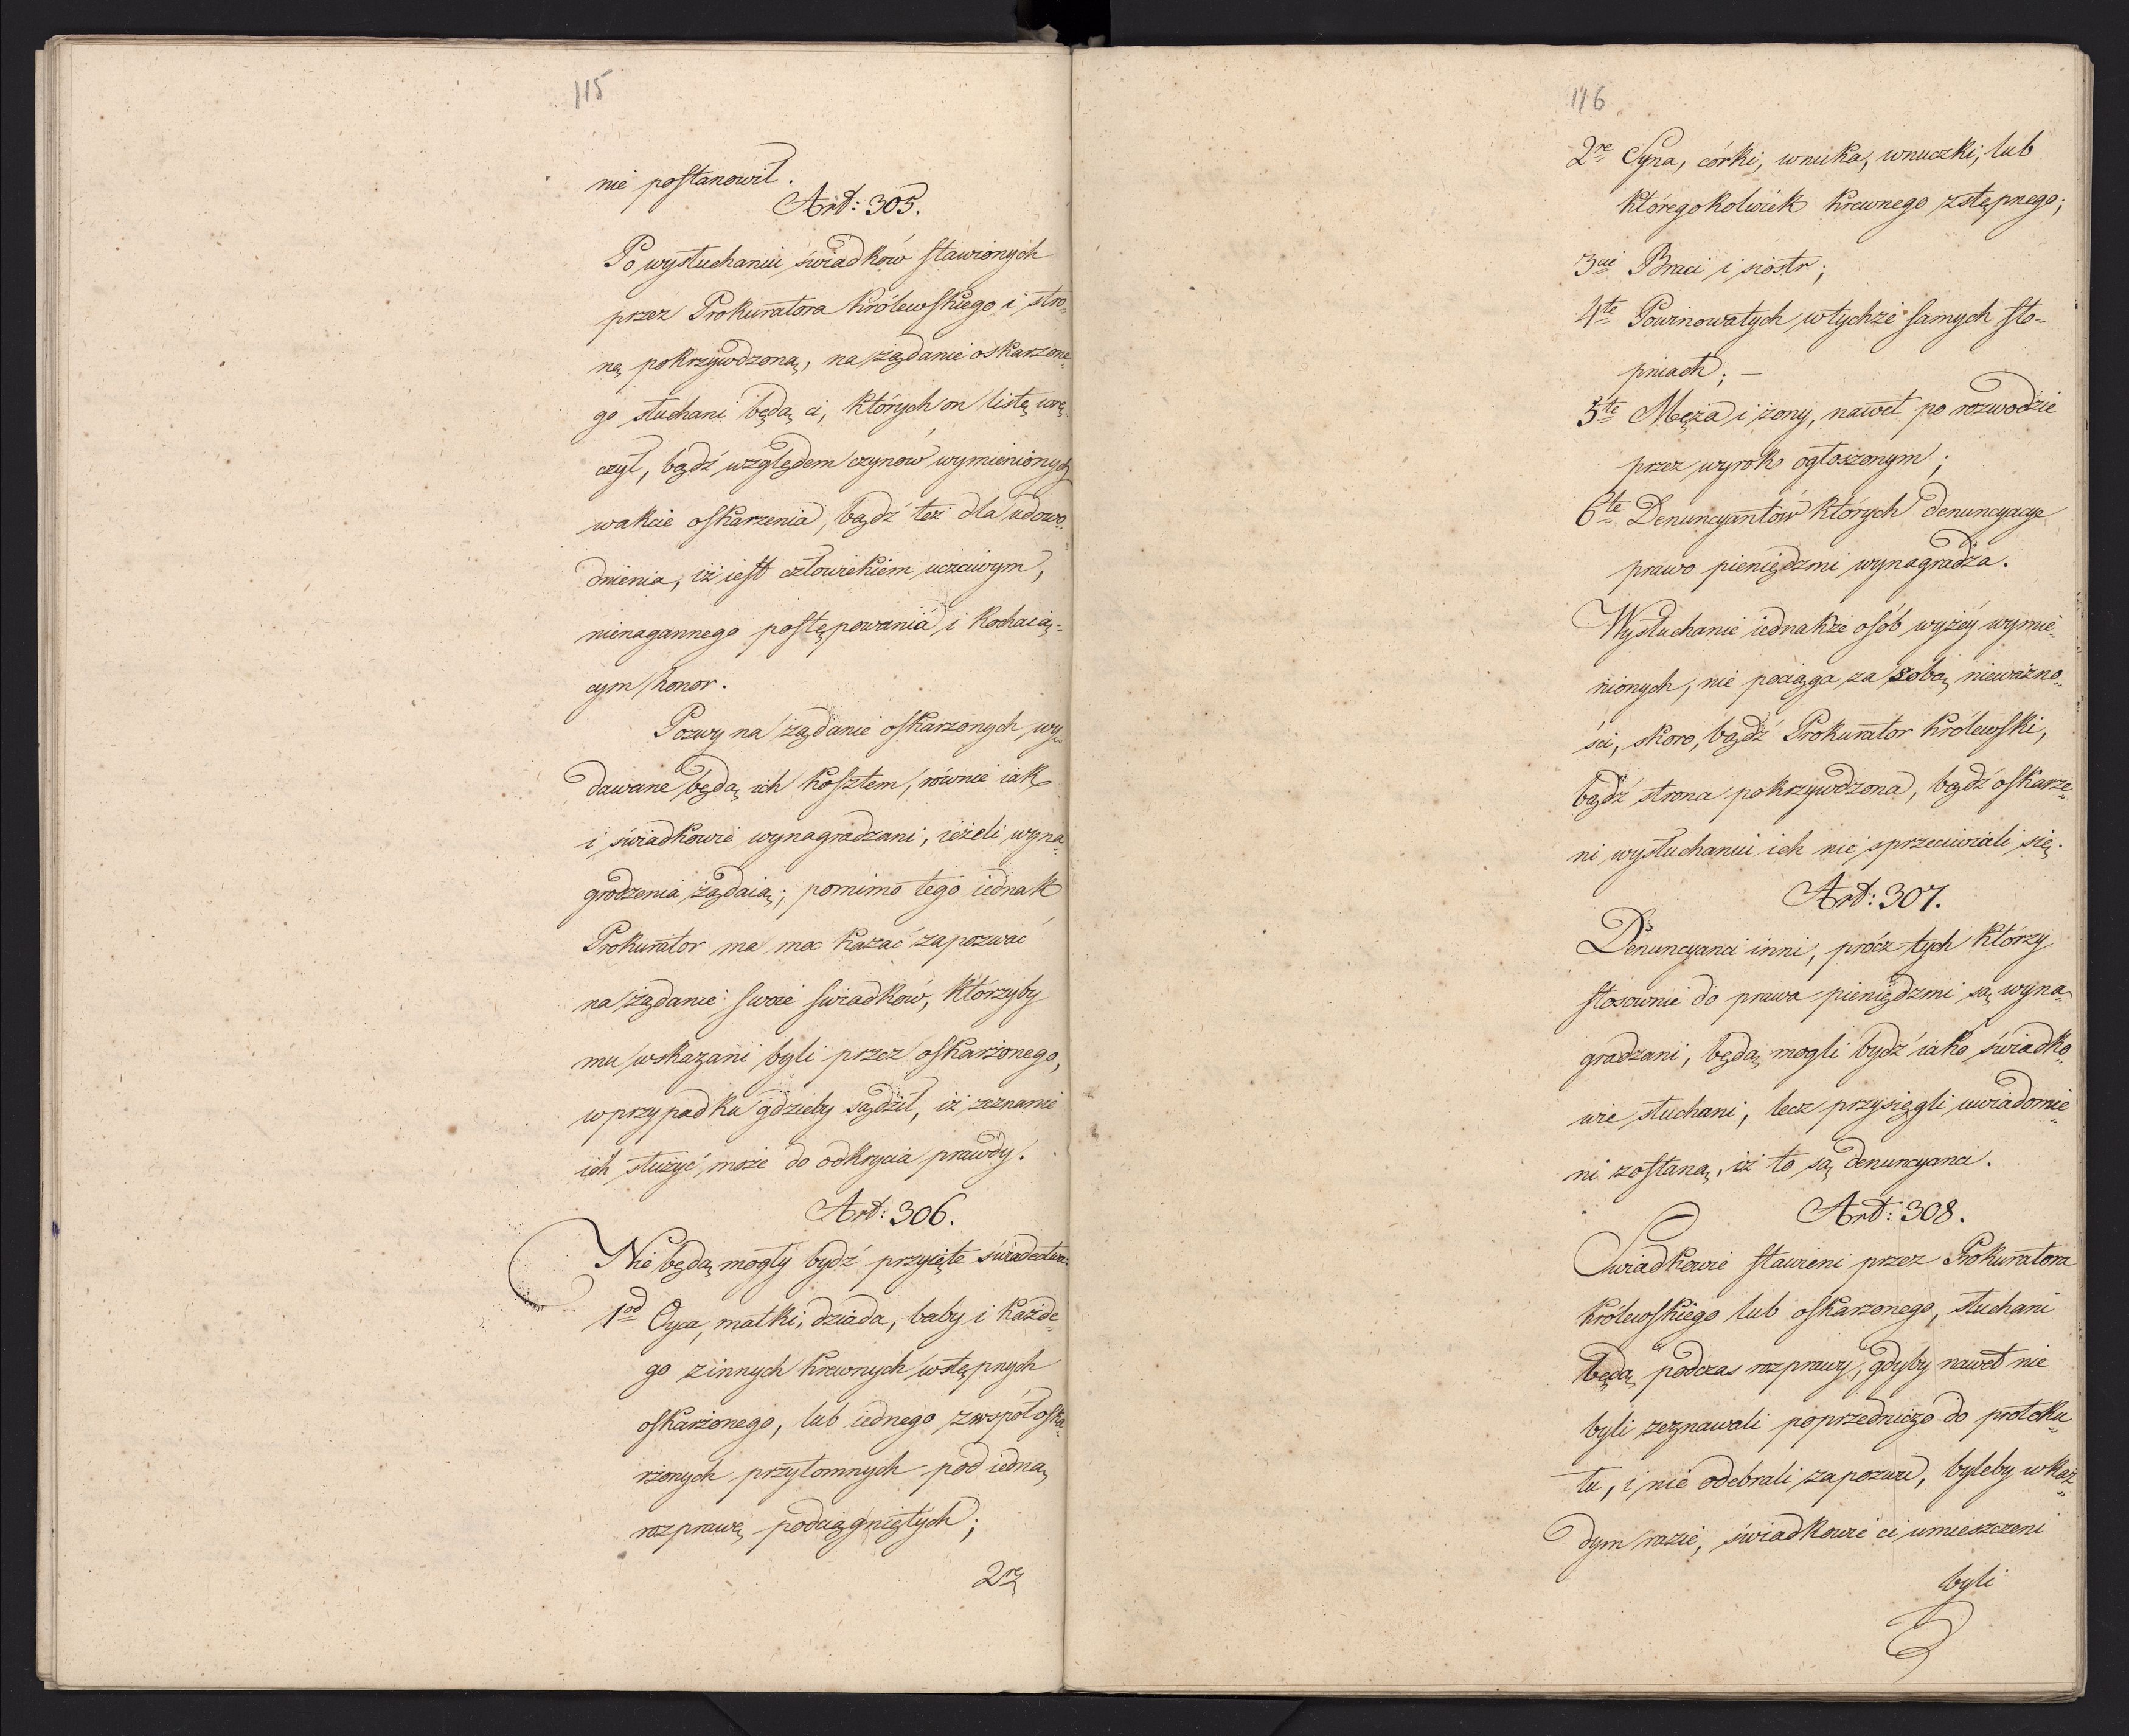 115
nie postanowił.
Art: 305.
Po wysłuchaniu świadków stawionych
przez Prokuratora Królewskiego i stro-
nę pokrzywdzoną, na żądanie oskarzone-
go słuchani będą ci, których on listę wrę-
czył, bądź względem czynów wymienionych
wakcie oskarzenia, bądź też dla udowo-
dnienia, iż iest człowiekiem uczciwym,
nienagannego postępowania i kochaią-
cym honor.
Pozwy na żądanie oskarzonych wy-
dawane będą ich kosztem, równie iak
i świadkowie wynagradzani, ieżeli wyna-
grodzenia żądaią; pomimo tego iednak
Prokurator ma moc kazać zapozwać
na żądanie swoie swiadków, którzyby
mu wskazani byli przez oskarżonego,
wprzypadku gdzieby sądził, iż zeznanie
ich służyć może do odkrycia prawdy.
Art: 306.
Nie będą mogły bydź przyięte świadectwa:
1od Oyca, matki, dziada, baby i każde-
go zinnych krewnych wstępnych
oskarżonego, lub iednego zwspółoska-
rżonych przytomnych pod iedną
rozprawę podciągniętych;
2re
116
2re Syna, córki, wnuka, wnuczki, lub
któregokolwiek krewnego zstępnego;
3cie Braci i siostr;
4te Powinowatych wtychże samych sto-
pniach; —
5te Męża i żony, nawet po rozwodzie
przez wyrok ogłoszonym;
6te Denuncyantów których denuncyacye
prawo pieniędzmi wynagradza.
Wysłuchanie iednakże osób wyżéy wymie-
nionych, nie pociąga za sobą nieważno-
ści, skoro, bądź Prokurator Królewski,
bądź strona pokrzywdzona, bądź oskarze-
ni wysłuchaniu ich nie sprzeciwiali się.
Art: 307.
Denuncyanci inni, prócz tych którzy
stosownie do prawa pieniędzmi są wyna-
gradzani, będą mogli bydź iako świadko-
wie słuchani, lecz przysięgli uwiadomie-
ni zostaną, iż to są denuncyanci.
Art: 308.
Swiadkowie stawieni przez Prokuratora
Królewskiego lub oskarzonego, słuchani
będą podczas rozprawy, gdyby nawet nie
byli zeznawali poprzedniczo do protoku-
łu, i nie odebrali zapozwu, byleby wkaż-
dym razie, świadkowie ci umieszczeni
byli